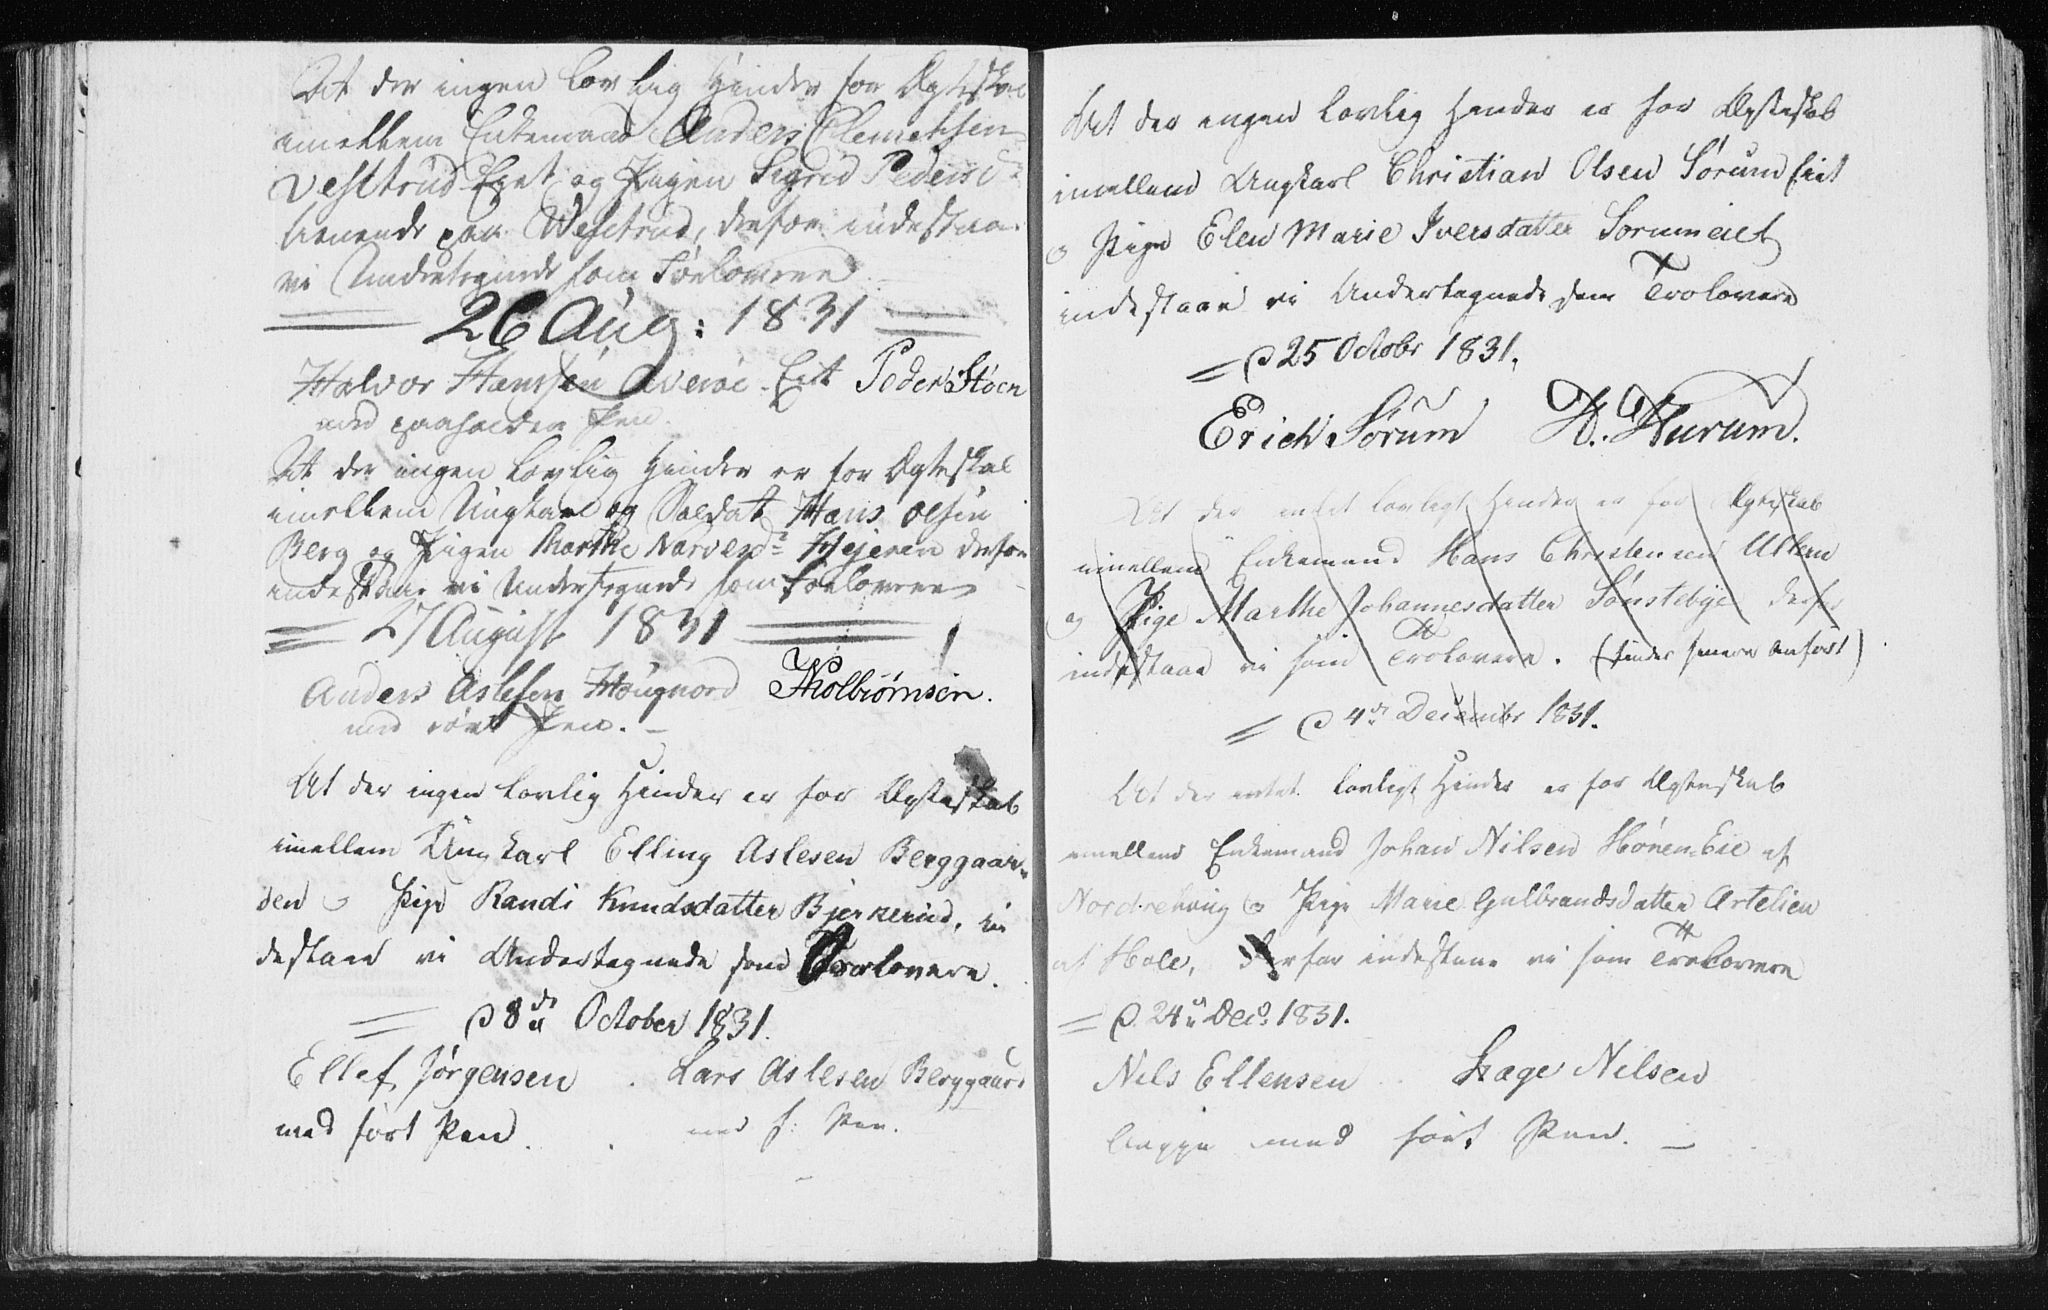 At der ingen lovlig Hinder for Ægteskab
imellem Enkemand Anders Clemetsen
Vestrud Eiet og Pigen Sigrid Pedersd:
tienende paa Westrud, derfor indestaa
vi Undertegnede som Forlovere
26 Aug: 1831
Halvor Hansen Averøe Eit Peder Støen
med paaholden Pen.
At der ingen lovlig Hinder er for Ægteskab
imellem Ungkarl og Soldat Hans Olsen
Berg og Pigen Marthe Narvesd: Hejeren derfor
indestaar vi Undertegnede som Forlovere
27 August 1831
Anders Aslesen Hougnord Tholbiørnsen.
med ført Pen.
At der ingen lovlig Hinder er for Ægteskab
imellem Ungkarl Elling Aslesen Berggaar-
den o Pige Randi Knudsdatter Bjerkerud, in
destaae vi Undertegnede som Forlovere.
D 8de October 1831.
Ellef Jørgensen . Lars Aslesen Berggaard
med ført Pen. med f: Pen.
At der ingen lovlig Hinder er for Ægteskab
imellem Ungkarl Christian Olsen Sørum Eiet
o Pige Elen Marie Iversdatter Sørumeiet
indestaae vi Undertegnede som Trolovere
D 25 Octobr 1831.
Erich Sørum H. Hurum.
At der intet lovligt Hinder er for Ægteskab
imellem Enkemand Hans Christensen Ultern
o Pige Marthe Johannesdatter Sønstebye derfor
indestaae vi som Trolovere. (findes senere anført)
D 4de Decembr 1831.
At der intet lovligt Hinder er for Ægteskab
emellem Enkemand Johan Nilsen Hønen-Eie af
Nordrehoug o Pige Marie Gulbrandsdatter Artelien
af Hole, derfor indestaae vi som Trolovere
D. 24de Dec: 1831.
Nils Ellensen . Hage Nilsen
begge med ført Pen.